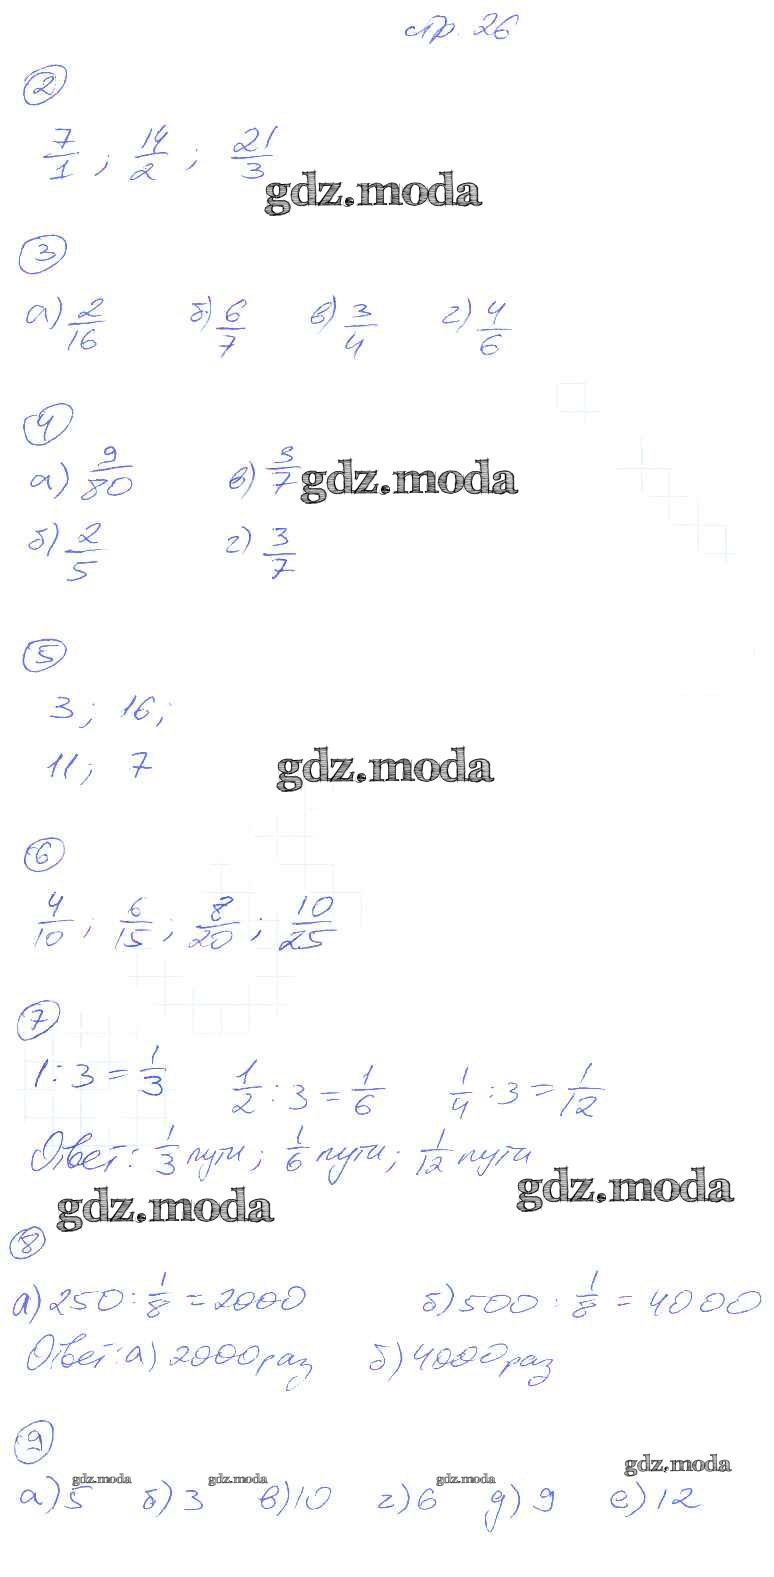 стр. 26
2
7/1 ; 14/2 ; 21/3
gdz.moda
3
а) 2/16 б) 6/7 в) 3/4 г) 4/6
4
а) 9/80 в) 3/7 gdz.moda
б) 2/5 г) 3/7
5
3; 16;
11; 7
gdz.moda
6
4/10 ; 6/15 ; 8/20 ; 10/25
7
1 : 3 = 1/3 1/2 : 3 = 1/6 1/4 : 3 = 1/12
Ответ: 1/3 пути; 1/6 пути; 1/12 пути
gdz.moda gdz.moda
8
а) 250 : 1/8 = 2000 б) 500 : 1/8 = 4000
Ответ: а) 2000 раз б) 4000 раз
9
gdz.moda gdz.moda gdz.moda gdz.moda
а) 5 б) 3 в) 10 г) 6 д) 9 е) 12